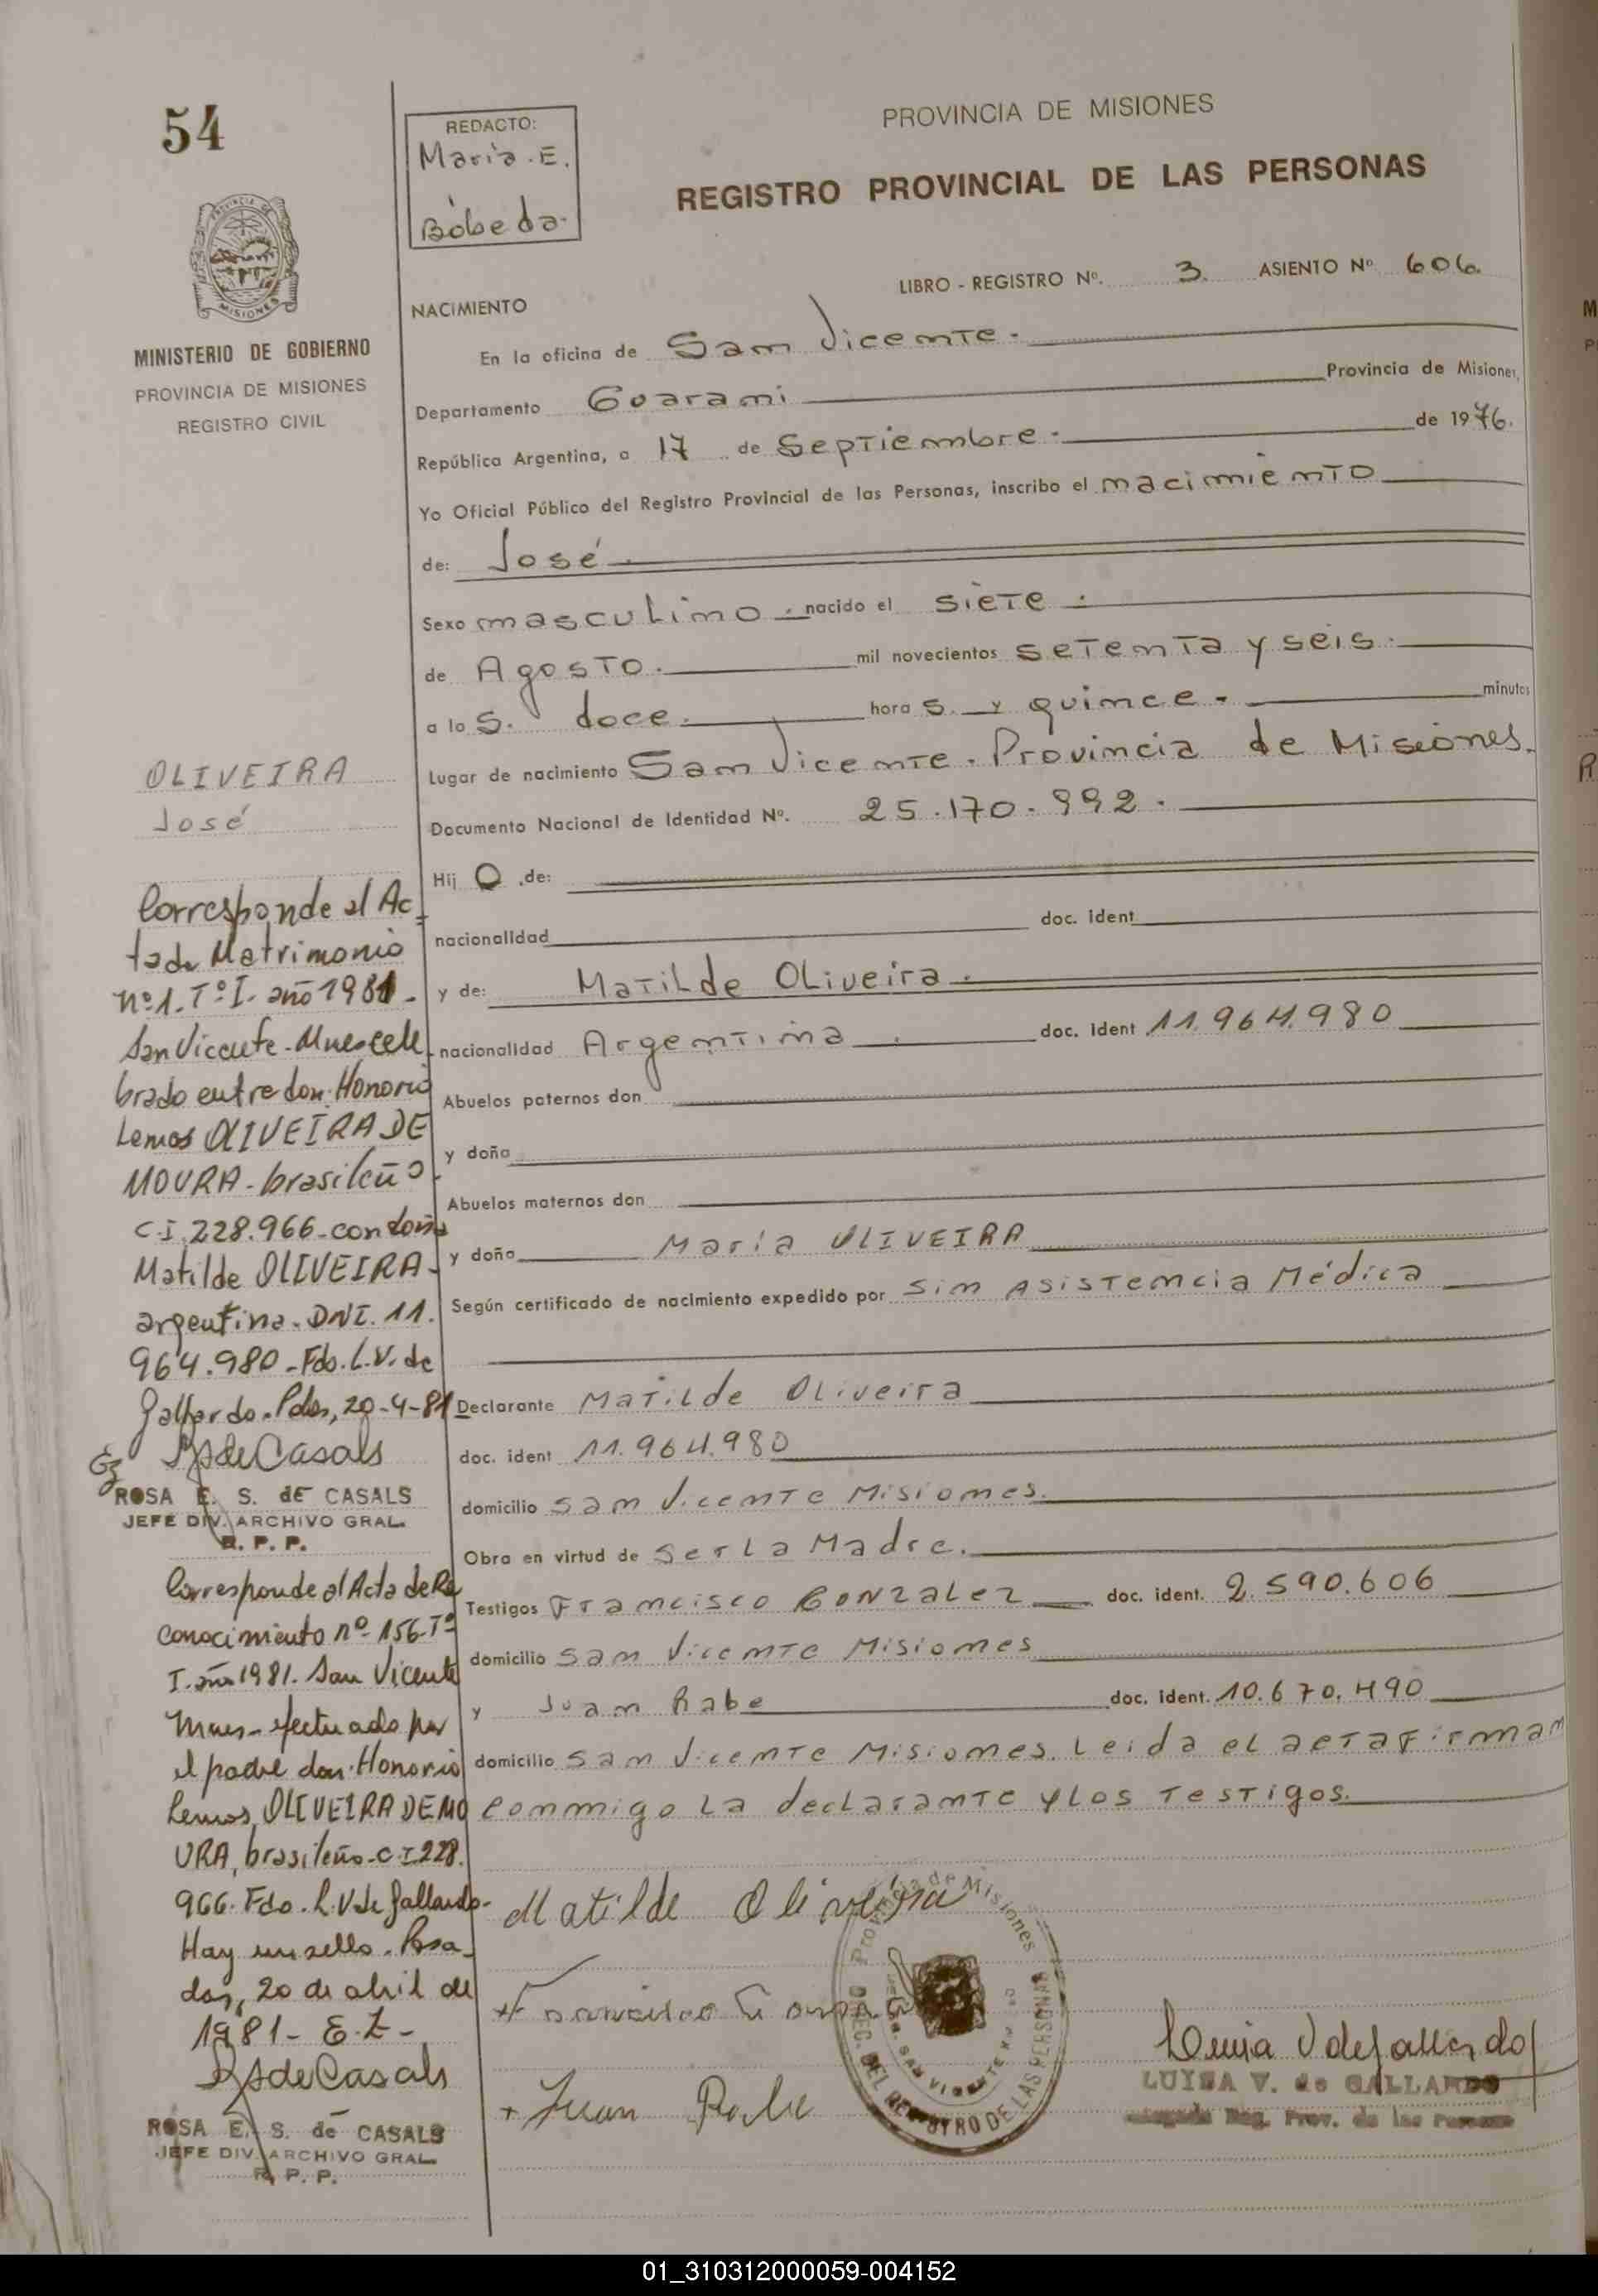 54
REDACTO:
Maria. E.
Bóbeda.
PROVINCIA DE MISIONES
REGISTRO PROVINCIAL DE LAS PERSONAS
LIBRO - REGISTRO Nº. 3. ASIENTO Nº 606.
PROVINCIA DE
MISIONES
MINISTERIO DE GOBIERNO
PROVINCIA DE MISIONES
REGISTRO CIVIL
NACIMIENTO
En la oficina de San Vicente.
Departamento Guarani Provincia de Misiones,
República Argentina, a 17 de Septiembre. de 1976.
Yo Oficial Público del Registro Provincial de las Personas, inscribo el nacimiento
de: José.
Sexo masculino. nacido el siete.
de Agosto. mil novecientos setenta y seis.
a las. doce. horas. y quince. minutos
Lugar de nacimiento San Vicente. Provincia de Misiones.
Documento Nacional de Identidad Nº. 25.170.992.
Hijo de:
nacionalidad doc. ident
y de: Matilde Oliveira.
nacionalidad Argentina. doc. ident 11.964.980
Abuelos paternos don
y doña
Abuelos maternos don
y doña María OLIVEIRA
Según certificado de nacimiento expedido por Sin Asistencia Médica
Declarante Matilde Oliveira
doc. ident 11.964.980
domicilio San Vicente Misiones.
Obra en virtud de Ser La Madre.
Testigos Francisco GONZALEZ doc. ident. 2.590.606
domicilio San Vicente Misiones
y Juan Rabe doc. ident. 10.670.490
domicilio San Vicente Misiones. Leida el acta firman
conmigo La declarante y los Testigos.
OLIVEIRA
José
Corresponde al Ac-
ta de Matrimonio
nº1.Tº I. año 1981-
San Vicente-Mnes cele
brado entre don Honorio
Lemos OLIVEIRA DE
MOURA-brasileño-
C.I. 228.966-con doña
Matilde OLIVEIRA-
argentina. DNI. 11.
964.980-Fdo. L.V. de
Gallardo. Pdas, 20-4-81
RSdeCasals
ROSA E. S. de CASALS
JEFE DIV. ARCHIVO GRAL.
R. P. P.
Corresponde al Acta de Re
conocimiento nº 156-Tº
I. año 1981. San Vicente
Mnes-efectuado por
el padre don Honorio
Lemos OLIVEIRA DE MO
URA, brasileño-C I 228.
966. Fdo. L.V de Gallardo-
Hay un sello. Posa-
das, 20 de abril de
1981- E.Z-
RSdeCasals
ROSA E. S. de CASALS
JEFE DIV. ARCHIVO GRAL.
R. P. P.
Matilde Oliveira
Francisco
Juan Rabe
Provincia de Misiones
DIREC. DEL REGISTRO DE LAS PERSONAS
SAN VICENTE
Luisa V de Gallardo
LUISA V. de GALLARDO
Reg. Prov. de las Personas
01_310312000059-004152